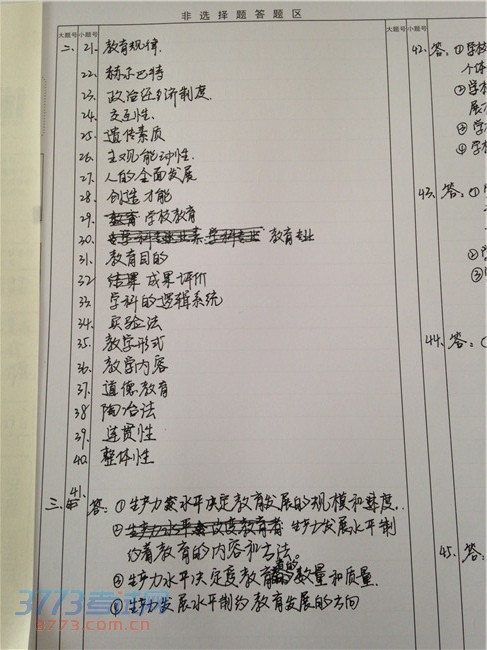 非选择题答题区
大题号 小题号
大题号 小题号
二、21、教育规律.
22、赫尔巴特
23、政治经济制度.
24、交互性、
25、遗传素质
26、主观能动性.
27、人的全面发展
28、创造才能
29、教育 学校教育
30、教育专业
31、教育目的
32、结果 成果评价
33、学科的逻辑系统
34、实验法
35、教学形式
36、教学内容
37、道德教育
38 陶冶法
39、连贯性
40、整体性
三、41、答：①生产力发水平决定教育发展的规模和速度.
② 生产力发展水平制
约着教育的内容和方法。
③生产力水平决定教育的数量和质量.
④生产力发展水平制约教育发展的方向
42、答：①学校
个体
②学校
展
③学
④学校
43、答：①
②
③
44、答：
45、答：
3773考试网
www.3773.com.cn